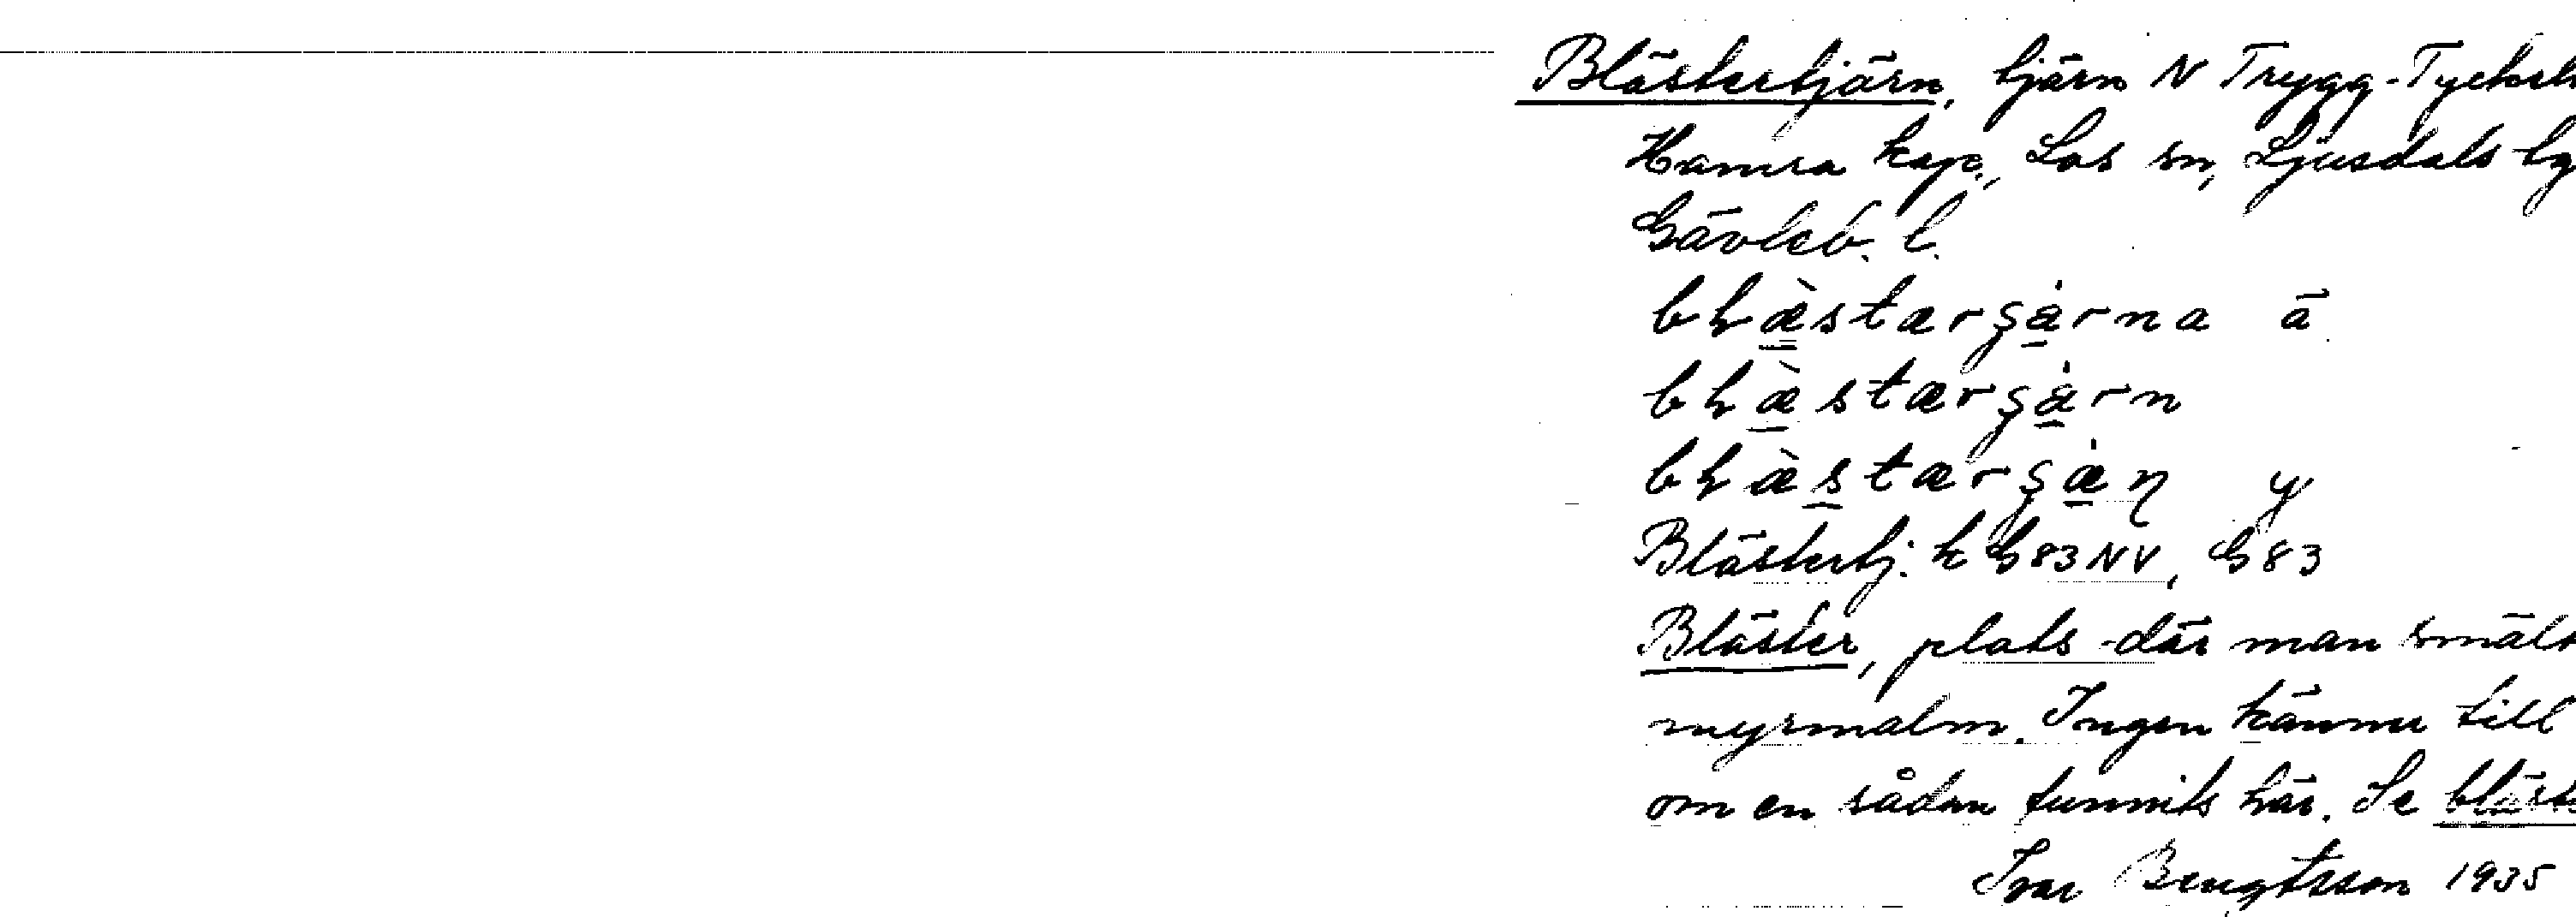 Blästertjärn, tjärn N Trygg-Tycksk
Hamra kap., Los sn, Ljusdals tg
Gävleb. l.
bḷæ̀starʂàrna ä
bḷæ̀stærʂàrn
bḷæ̀stærʂæ̀ṇ y
Blästertj. k G83NV, G83
Bläster, plats där man smält
myrmalm. Ingen känner till
om en sådan funnits här. Se bläst
Ivar Bengtsson 1935